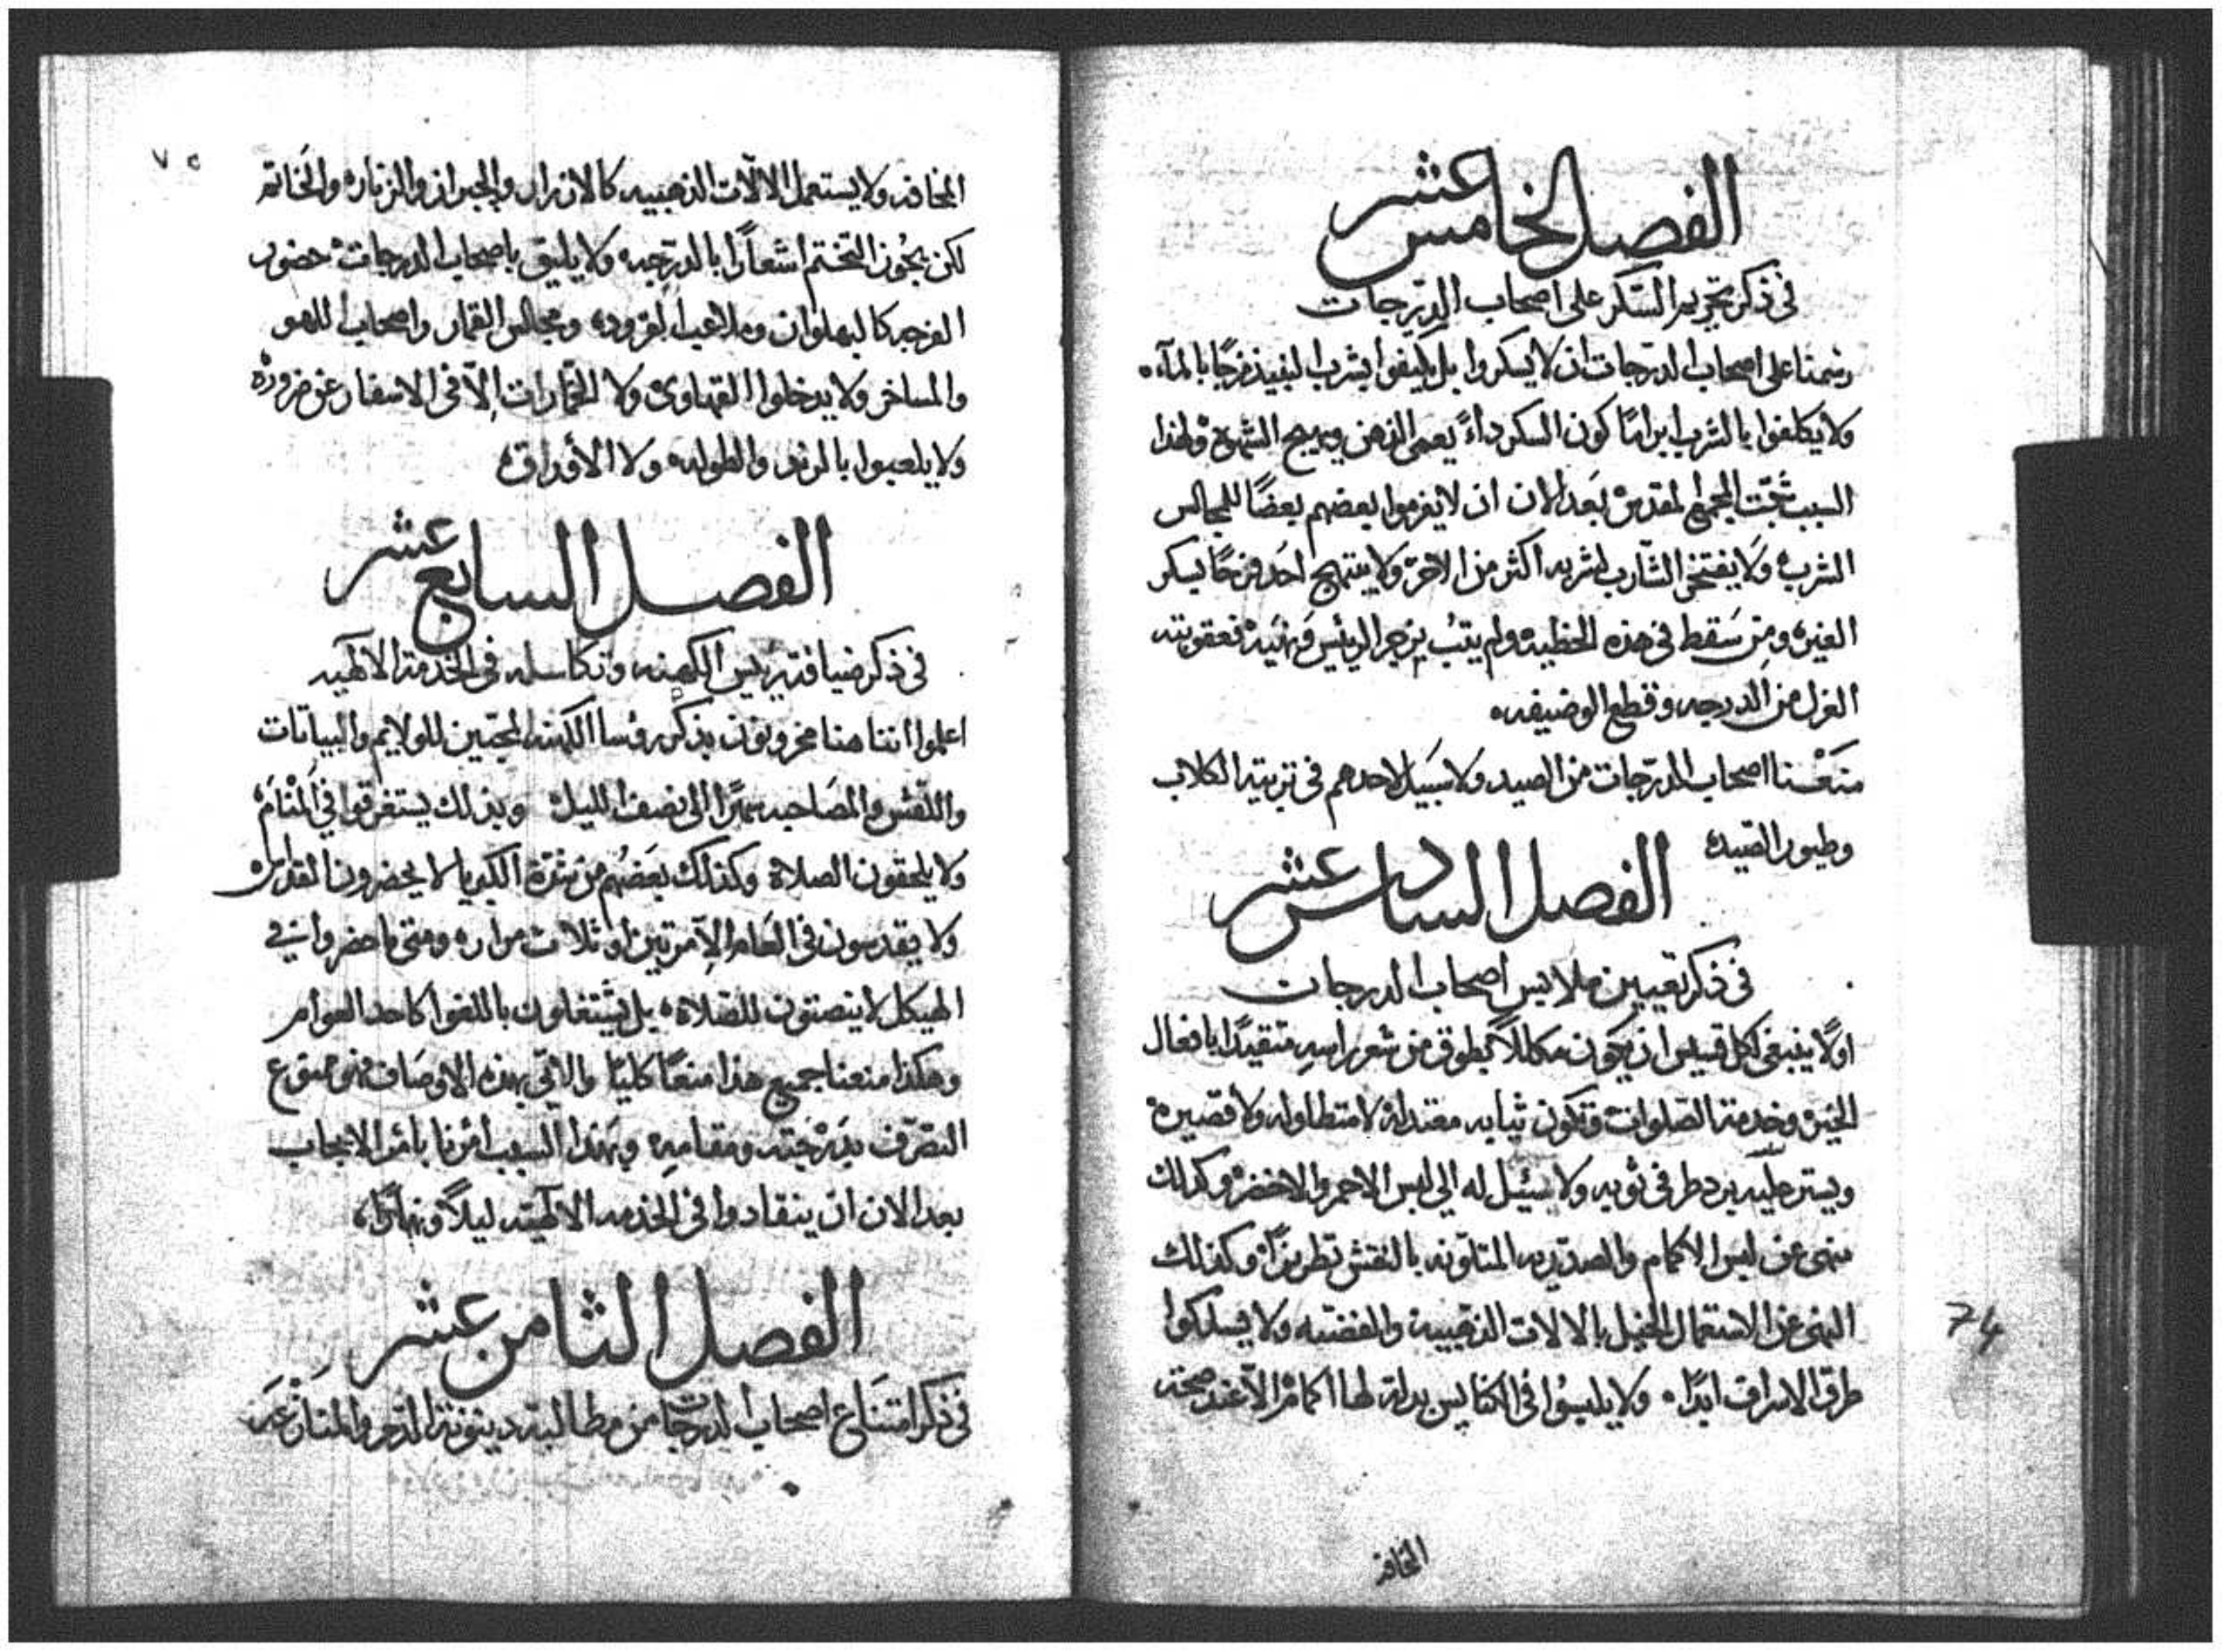 الفصل الخامس عشر
في ذكر تحريم السكر على اصحاب الدرجات
رسمنا على اصحاب الدرجات ان لا يسكروا بل يكتفوا بشرب النبيذ مزجًا بالمآء
ولا يكلفوا بالشرب ابدامًا كون السكر داءً يعمي الذهن ويهيج الشهوة ولهذا
السبب المجمع المقدس بعد الان ان لا يعزموا بعضهم بعضًا للمجالس
الشرب ولا يفتخر الشارب لشربه اكثر من الاخر ولا يبتهج احد فرحًا ليسكر
الغير ومن سقط في هذه الخطيه ولم يتب بزجر الرئيس ونهيه فعقوبته
العزل من الدرجه وقطع الوضيفه
منعنا اصحاب الدرجات من الصيد ولا سبيل لاحدهم في تربية الكلاب
وطيور الصيد
الفصل السادس عشر
في ذكر تعيين ملابس اصحاب الدرجات
اولًا ينبغي لكل قسيس ان يكون مكللاً بطوق من شعر راسه متقيدًا بافعال
الخير وخدمة الصلوات وتكون ثيابه معتدلة لا متطاوله ولا قصيرة
ويستر رجليه في ثوبه ولا سبيل له الي لبس الاحمر والاخضر وكذلك
ننهي عن لبس الاكمام والصدريه المتلونه بالنقش تطريزًا وكذلك
النهي عن الاستعمال الخيل بالالات الذهبيه والفضيه ولا يسلكوا
طرق الاسراف ابدًا ولا يلبسوا في الكنايس بدلة لها اكمام الا عند صحة
المخافه
74
٧٥
المخافه ولا يستعمل الالآت الذهبيه كالازرار والزناره والخاتم
لكن يجوز التختم اشعارًا بالدرجه ولا يليق باصحاب الدرجات حضور
الفرجه كالبهلوان وملاعيب القرود ومجالس القمار واصحاب اللهو
والمساخر ولا يدخلوا القهاوي ولا الخمارات إلا في الاسفار عن ضرورة
ولا يلعبوا بالنرد والطوله ولا الأوراق
الفصل السابع عشر
في ذكر ضيافة رئيس الكهنه وتكاسله في الخدمة الالهيه
اعلموا اننا هنا محزونون بذكر رؤسا الكهنة المحبين للولايم والبياتات
والمصاحبه سهرًا الى نصف الليل وبذلك يستغرقوا في المنام
ولا يلحقون الصلاة وكذلك بعضهم من شدة الكبريا لا يحضرون القداس
ولا يقدسون في العام إلا مرتين او ثلاث مرار ومتى ما حضروا في
الهيكل لا ينصتون للصلاة بل يشتغلون باللغو كاحد العوام
وهكذا منعنا جميع هذا منعًا كليًا والاتي بهذه الاوصاف فهو ممنوع
التصرف بدرجته ومقامه وبهذا السبب امرنا بامر الايجاب
بعد الان ان ينقادوا في الخدمه الالهيه ليلاً ونهارًا
الفصل الثامن عشر
في ذكر امتناع اصحاب الدرجات من مطالبة دينونة الدم والمنازعه